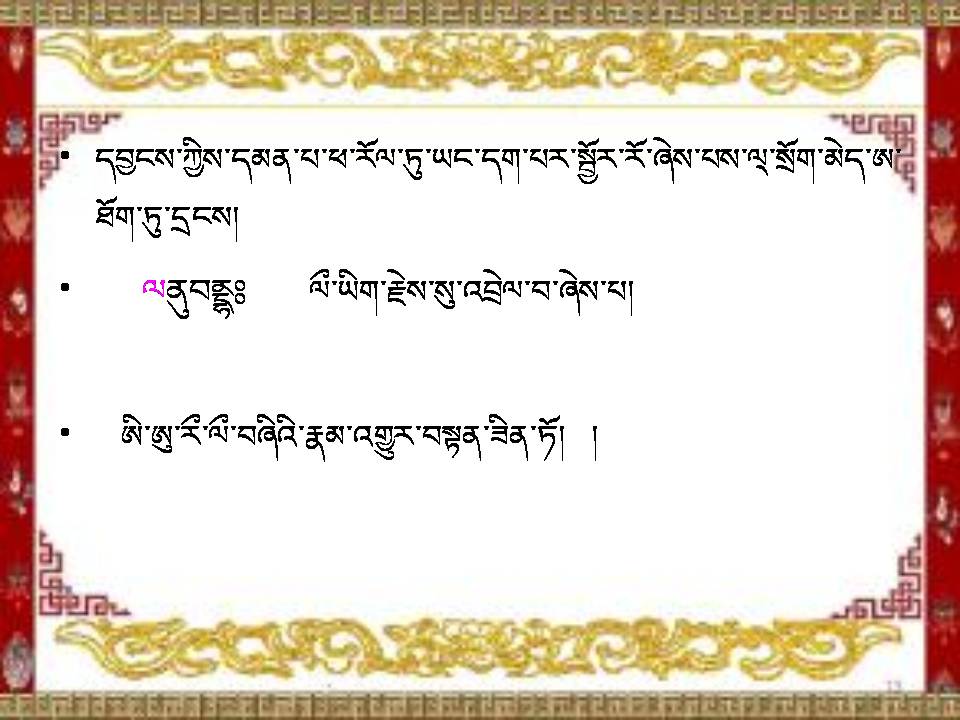 • དབྱངས་ཀྱིས་དམན་པ་ཕ་རོལ་ཏུ་ཡང་དག་པར་སྦྱོར་རོ་ཞེས་པས་ལ྄་སྲོག་མེད་ཨ་
ཐོག་ཏུ་དྲངས།
• ལནུབནྡྷཿ ལྀ་ཡིག་རྗེས་སུ་འབྲེལ་བ་ཞེས་པ།
• ཨི་ཨུ་རྀ་ལྀ་བཞིའི་རྣམ་འགྱུར་བསྟན་ཟིན་ཏོ། །